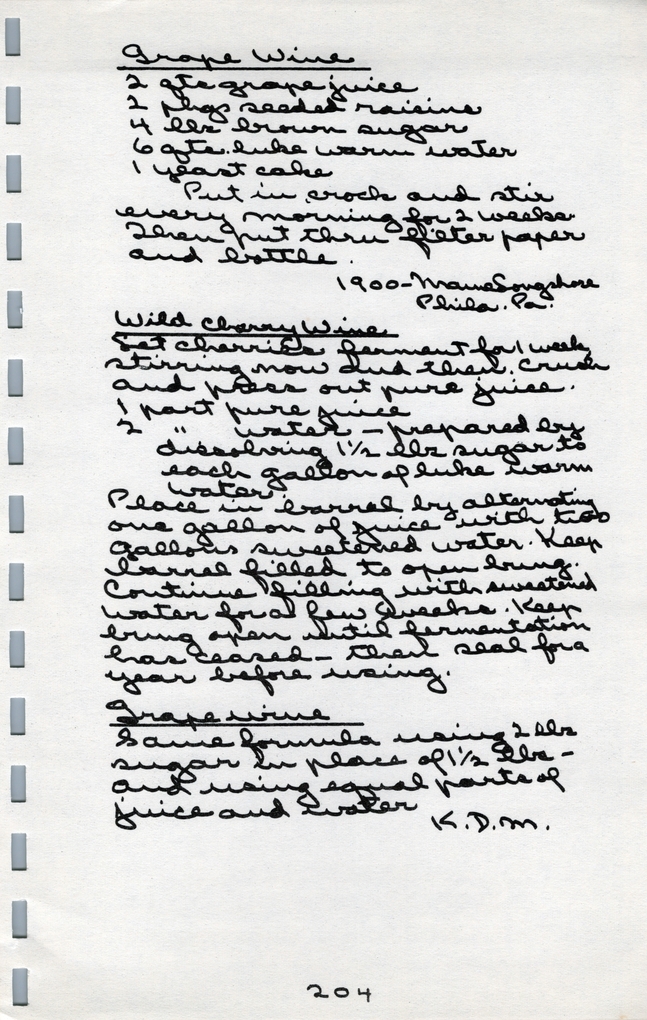 Grape Wine
2 qts grape juice
2 pkgs seeded raisins
4 lbs brown sugar
6 qts. luke warm water
1 yeast cake
Put in crock and stir
every morning for 2 weeks.
Then put thru filter paper
and bottle.
1900 - Mame Longshore
Phila. Pa.
Wild Cherry Wine
Let cherries ferment for 1 week,
stirring now and then. Crush
and press out pure juice.
1 part pure juice
2 " water - prepared by
dissolving 1 1/2 lbs sugar to
each gallon of luke warm
water.
Place in barrel by alternating
one gallon of juice with two
gallons sweetened water. Keep
barrel filled to open bung.
Continue filling with sweetened
water for a few weeks. Keep
bung open until fermentation
has ceased - then seal for a
year before using.
Grape wine
Same formula using 2 lbs
sugar in place of 1 1/2 lbs -
and using equal parts of
juice and water
K.D.M.
204